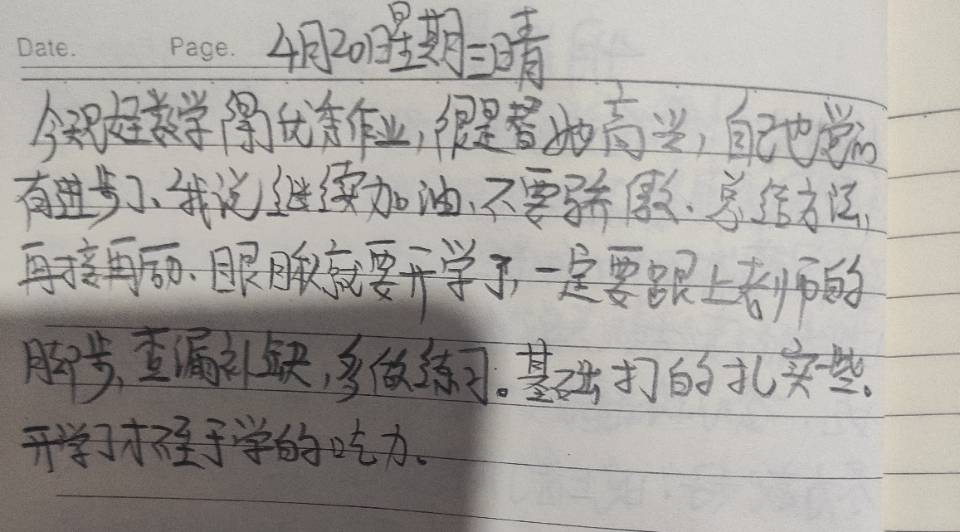 Date. Page. 4月20日星期三晴
今天女儿数学得优秀作业,很是替她高兴,自己也觉的
有进步了、我说继续加油、不要骄傲、总结方法,
再接再励、眼瞅就要开学了,一定要跟上老师的
脚步,查漏补缺,多做练习。基础打的扎实一些、
开学了才不至于学的吃力。